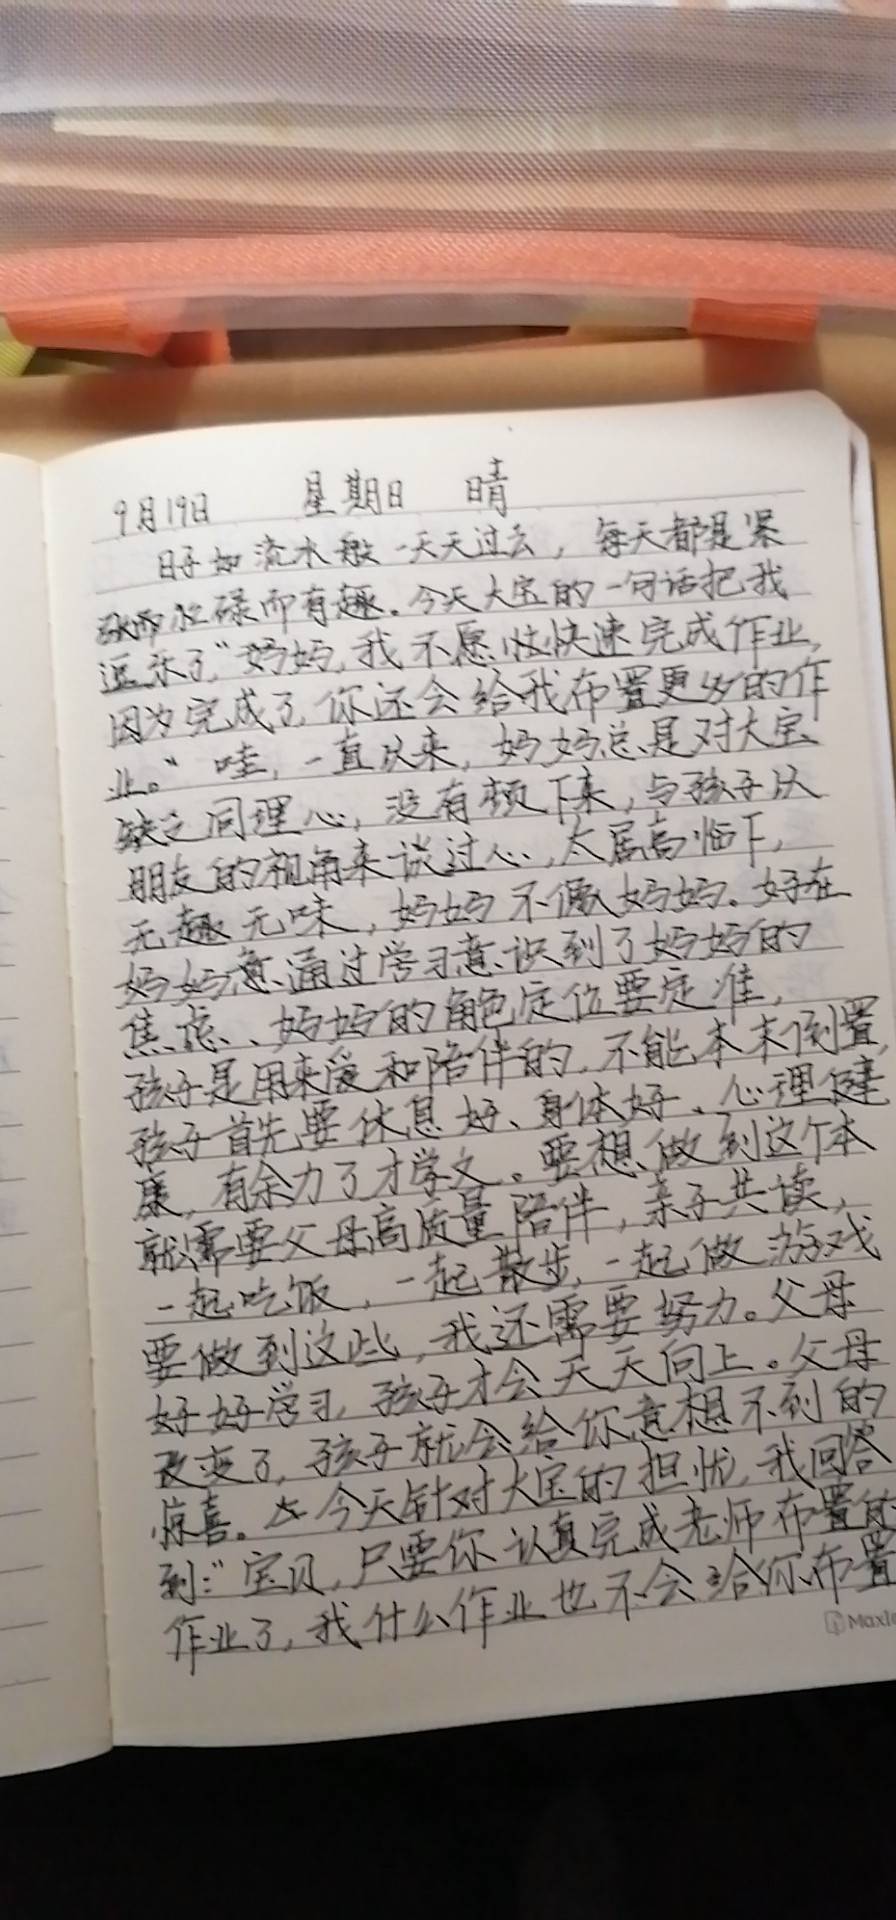 9月19日 星期日 晴
日子如流水般一天天过去，每天都是紧
而忙碌而有趣。今天大宝的一句话把我
逗乐了“妈妈，我不愿快速完成作业，
因为完成了，你还会给我布置更多的作
业。”哇，一直以来，妈妈总是对大宝
缺乏同理心，没有倾下来，与孩子以
朋友的视角来谈过心，太居高临下，
无趣无味，妈妈不像妈妈。好在
妈妈通过学习意识到了妈妈的
焦虑、妈妈的角色定位要定准，
孩子是用来爱和陪伴的，不能本末倒置，
孩子首先要休息好、身体好、心理健
康，有余力了才学文。要想做到这个本
就需要父母高质量陪伴，亲子共读，
一起吃饭，一起散步，一起做游戏
要做到这些，我还需要努力。父母
好好学习，孩子才会天天向上。父母
改变了，孩子就会给你意想不到的
惊喜。今天针对大宝的担忧，我回答
到：“宝贝，只要你认真完成老师布置的
作业了，我什么作业也不会给你布置
Maxle